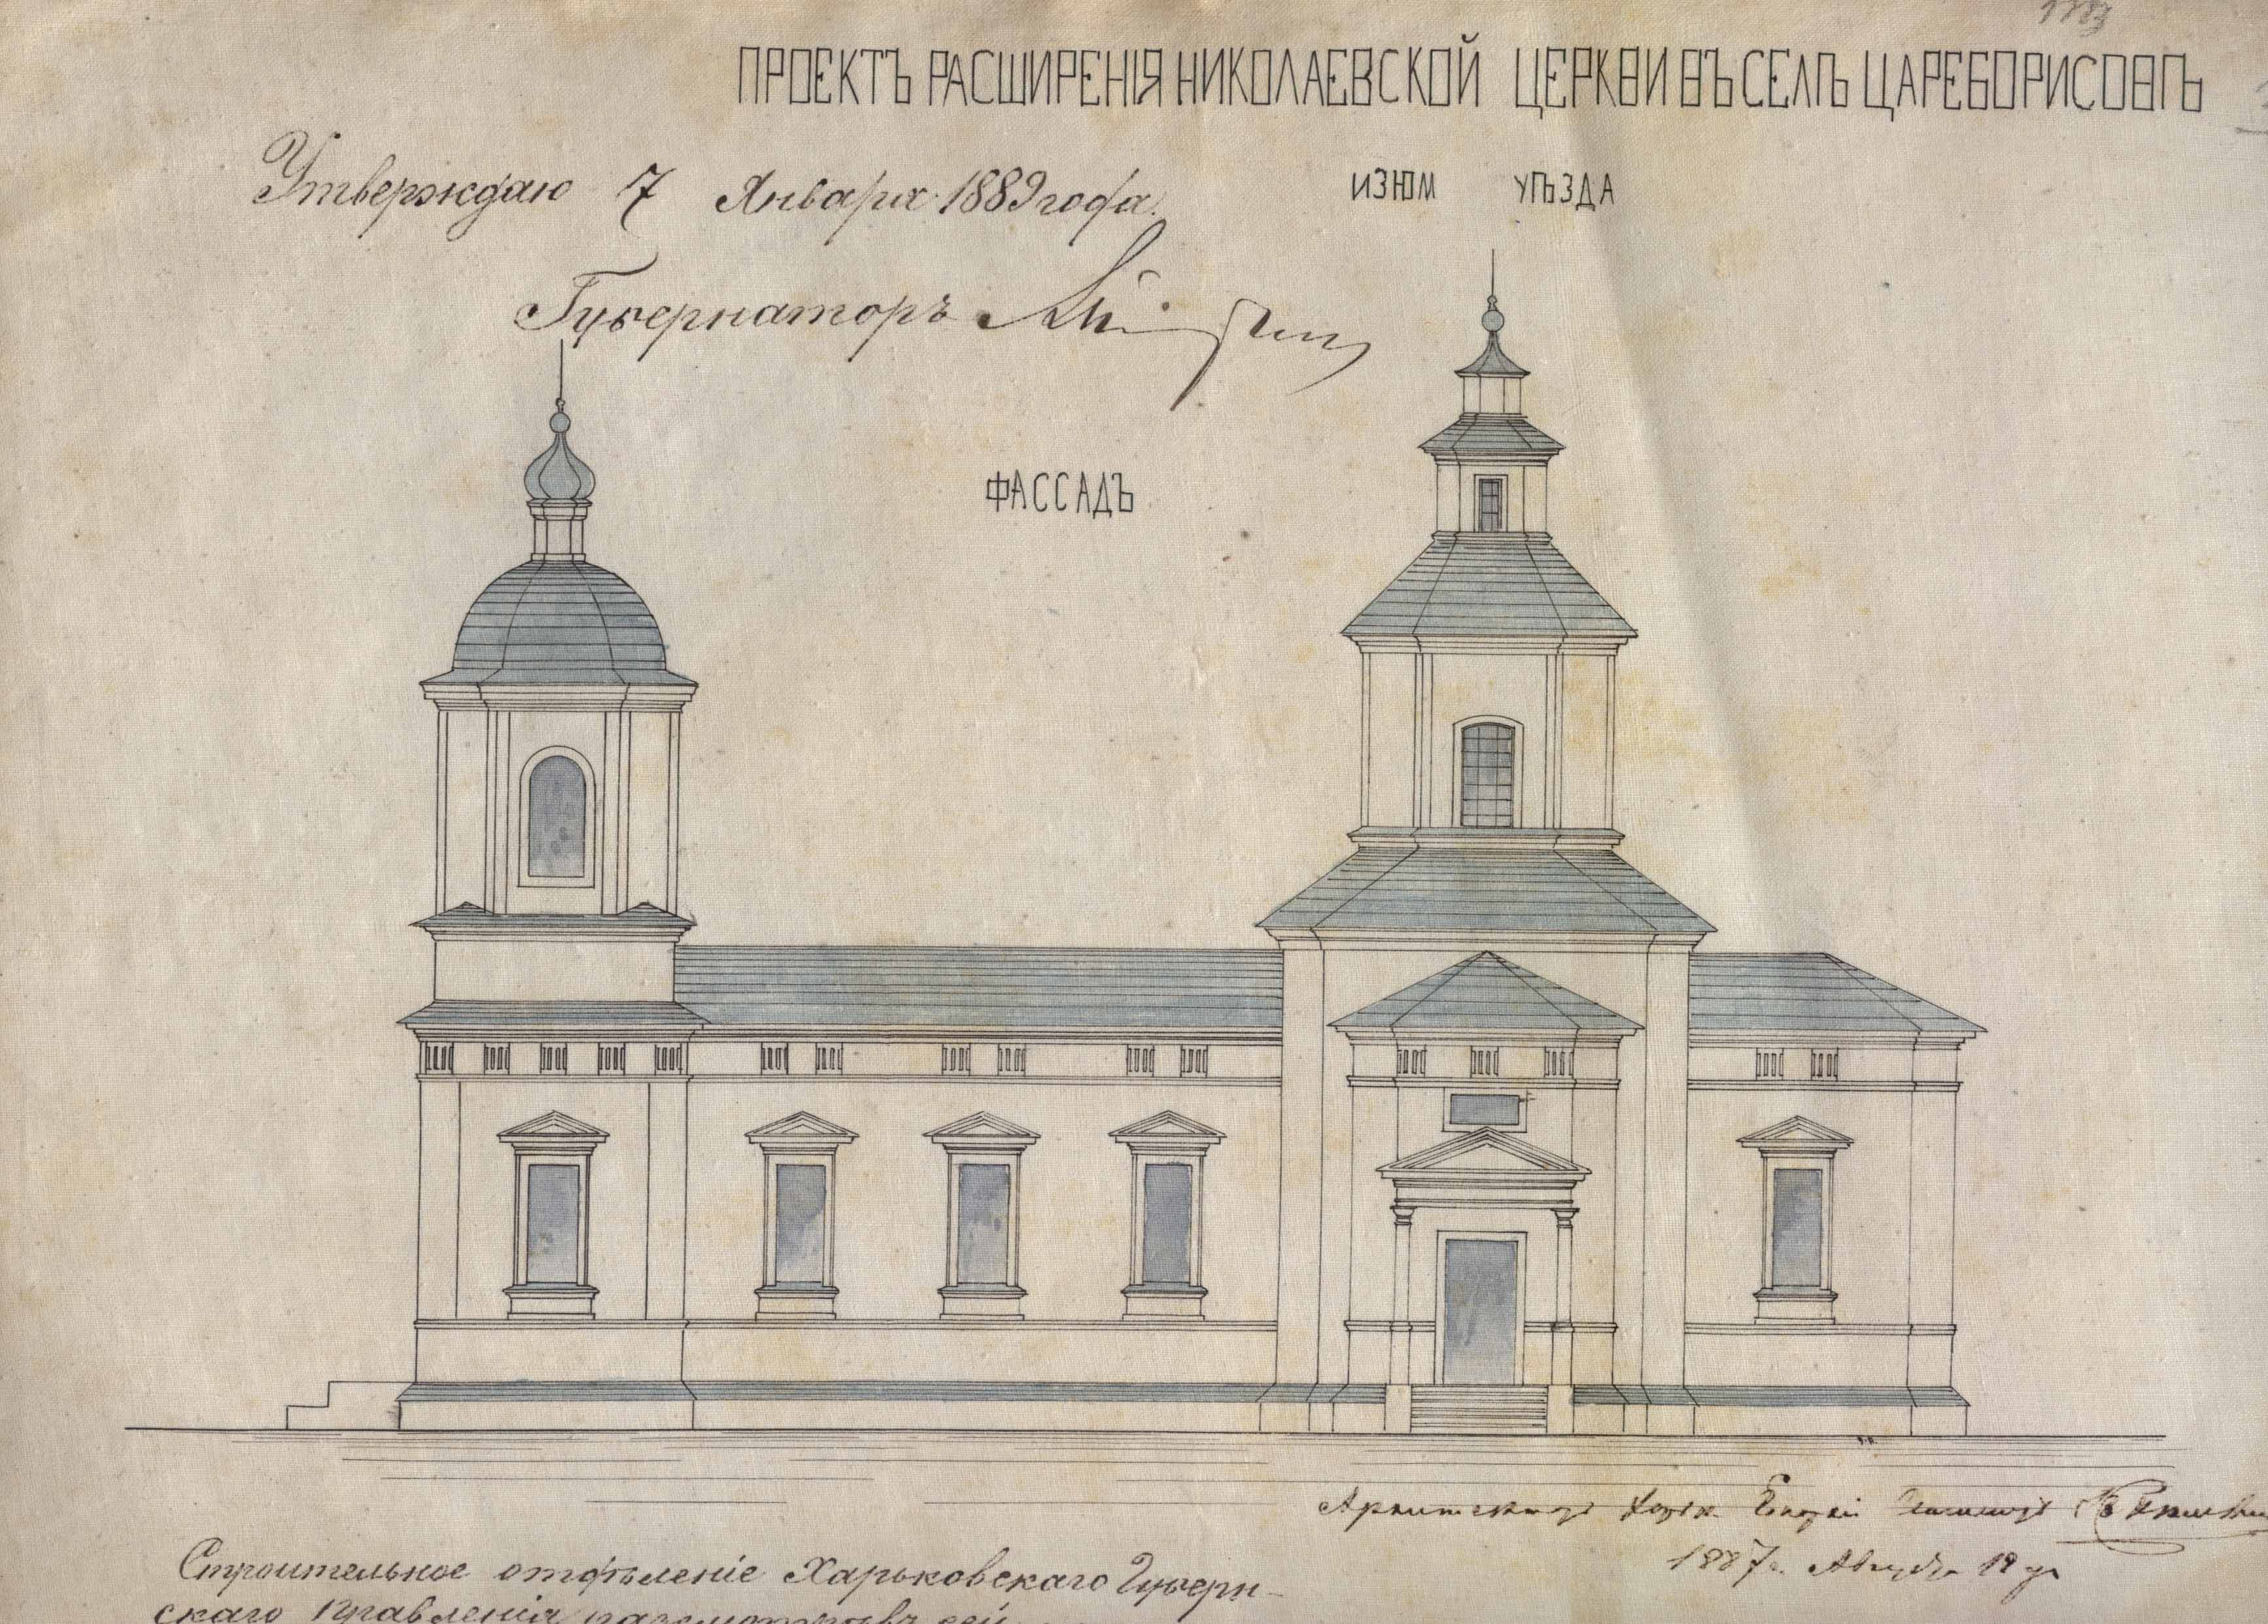 ПРОЕКТЪ РАСШИРЕНІЯ НИКОЛАЕВСКОЙ ЦЕРКВИ ВЪ СЕЛѢ ЦАРЕБОРИСОВѢ
ИЗЮМ УѢЗДА
Утверждаю 7 Января 1889 года.
Губернаторъ
ФАССАДЪ
Архитекторъ Харьк. Епархіи
1887 г. Августа 19 дн
Строительное отдѣленіе Харьковскаго Губерн-
скаго Правленія разсмотрѣвъ сей